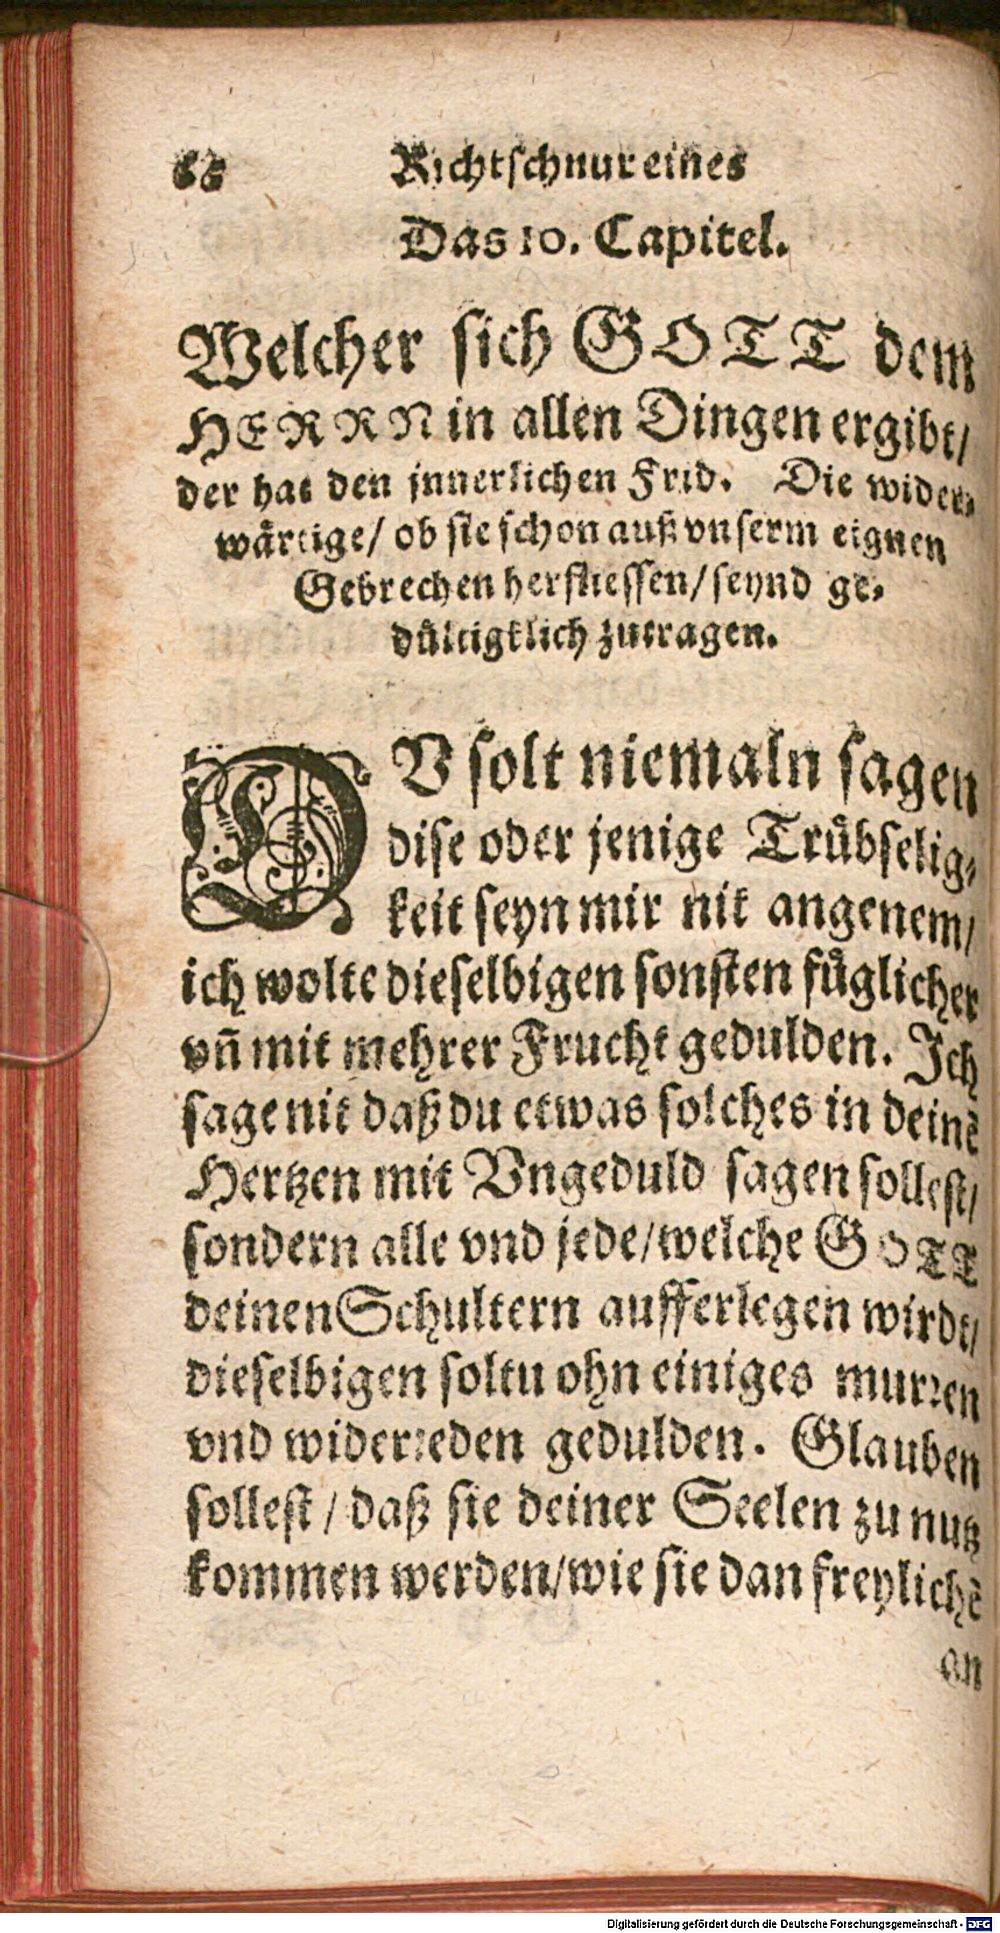 66 Richtschnur eines
Das 10. Capitel.
Welcher sich GOTT dem
HERRN in allen Dingen ergibt/
der hat den jnnerlichen Frid. Die wider-
wärtige/ ob sie schon auß vnserm eignen
Gebrechen herfliessen/ seynd ge-
dültigklich zutragen.
DV solt niemaln sagen
dise oder jenige Trübselig-
keit seyn mir nit angenem/
ich wolte dieselbigen sonsten füglicher
vñ mit mehrer Frucht gedulden. Ich
sage nit daß du etwas solches in deinẽ
Hertzen mit Vngeduld sagen sollest/
sondern alle vnd jede/ welche GOTT
deinen Schultern aufferlegen wirdt/
dieselbigen soltu ohn einiges murren
vnd widerreden gedulden. Glauben
sollest/ daß sie deiner Seelen zu nutz
kommen werden/ wie sie dan freylichẽ
an
Digitalisierung gefördert durch die Deutsche Forschungsgemeinschaft - DFG